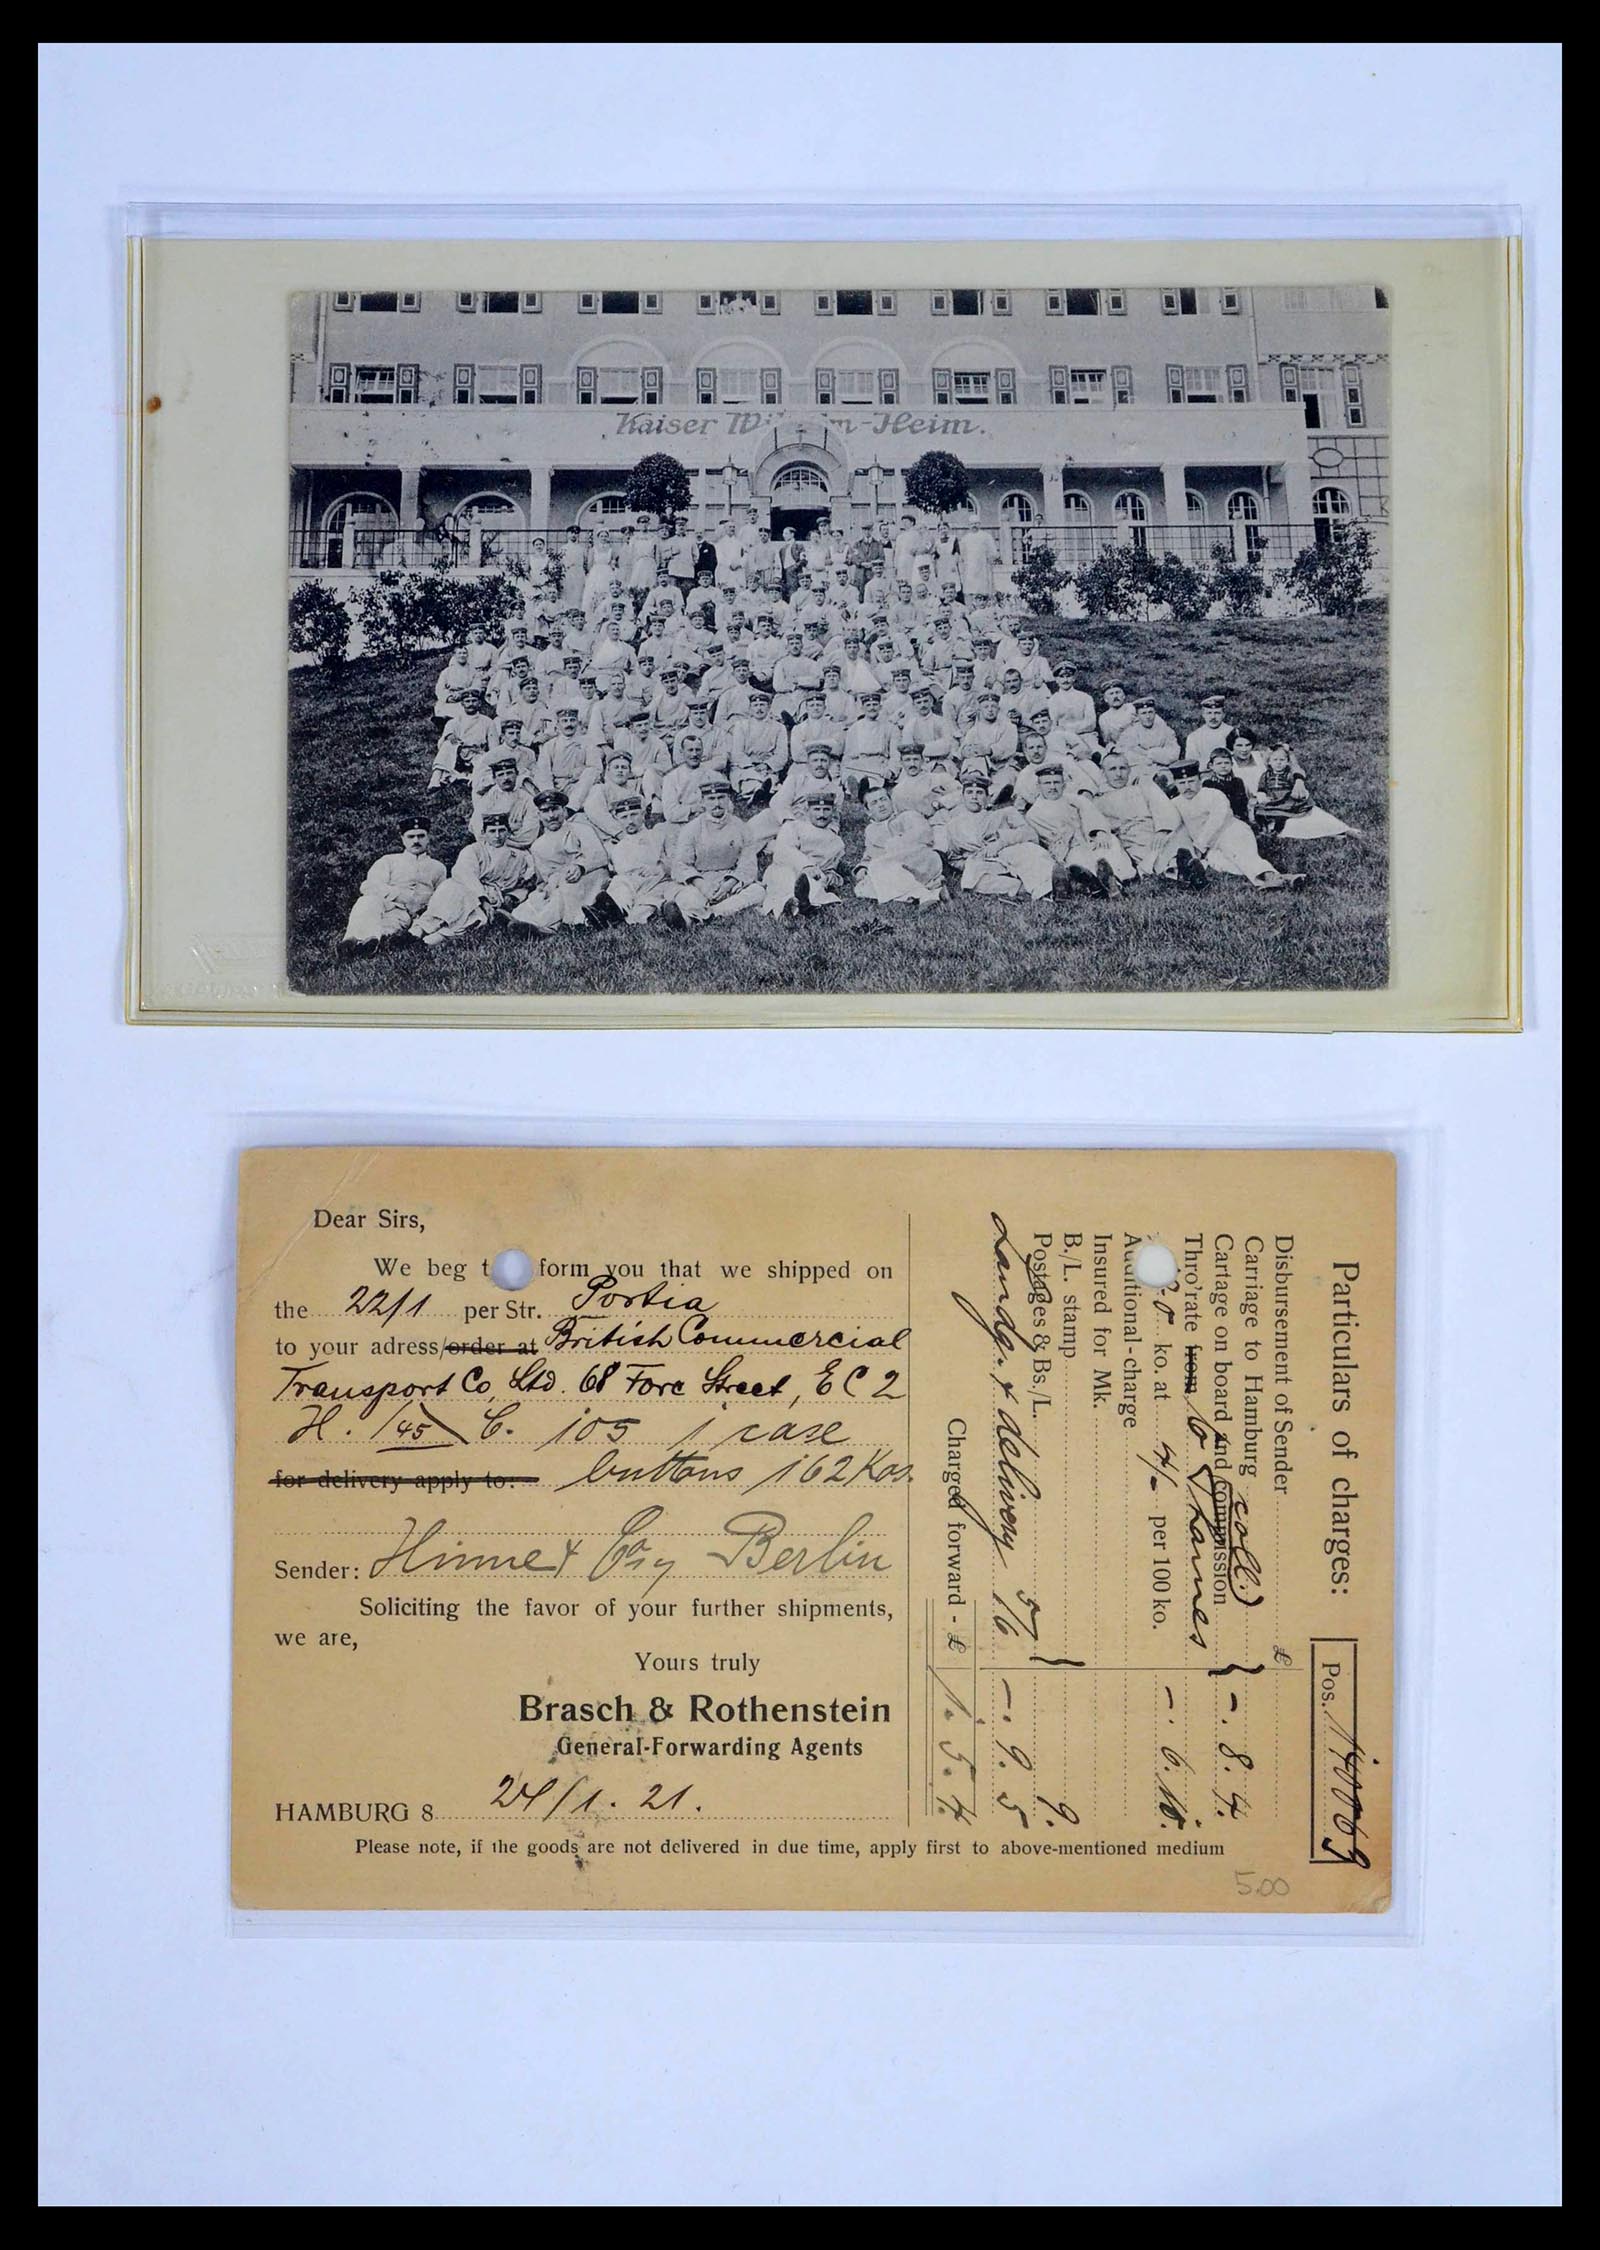 Kaiser Wilhelm-Heim.
Dear Sirs,
We beg t form you that we shipped on
the 22/1 per Str. Portia
to your adress/order at British Commercial
Transport Co, Ltd. 68 Fore Street, E C 2
H. 145 C. 105 1 case
for delivery apply to: buttons 162 Kos.
Sender: Hinne & Coy Berlin
Soliciting the favor of your further shipments,
we are,
Yours truly
Brasch & Rothenstein
General-Forwarding Agents
HAMBURG 8 24/1. 21.
Please note, if the goods are not delivered in due time, apply first to above-mentioned medium
Particulars of charges:
Pos. 140069
£
Disbursement of Sender
Carriage to Hamburg coll.)
Cartage on board and commission -. 8. 4.
Thro'rate from to Thames
ko. at 4/- per 100 ko. -. 6.
Additional-charge
Insured for Mk.
B./L. stamp
Postages & Bs./L. 9.
Landg. & delivery 5/6 -. 9. 5
Charged forward - £ 1. 5. 4.
5.00